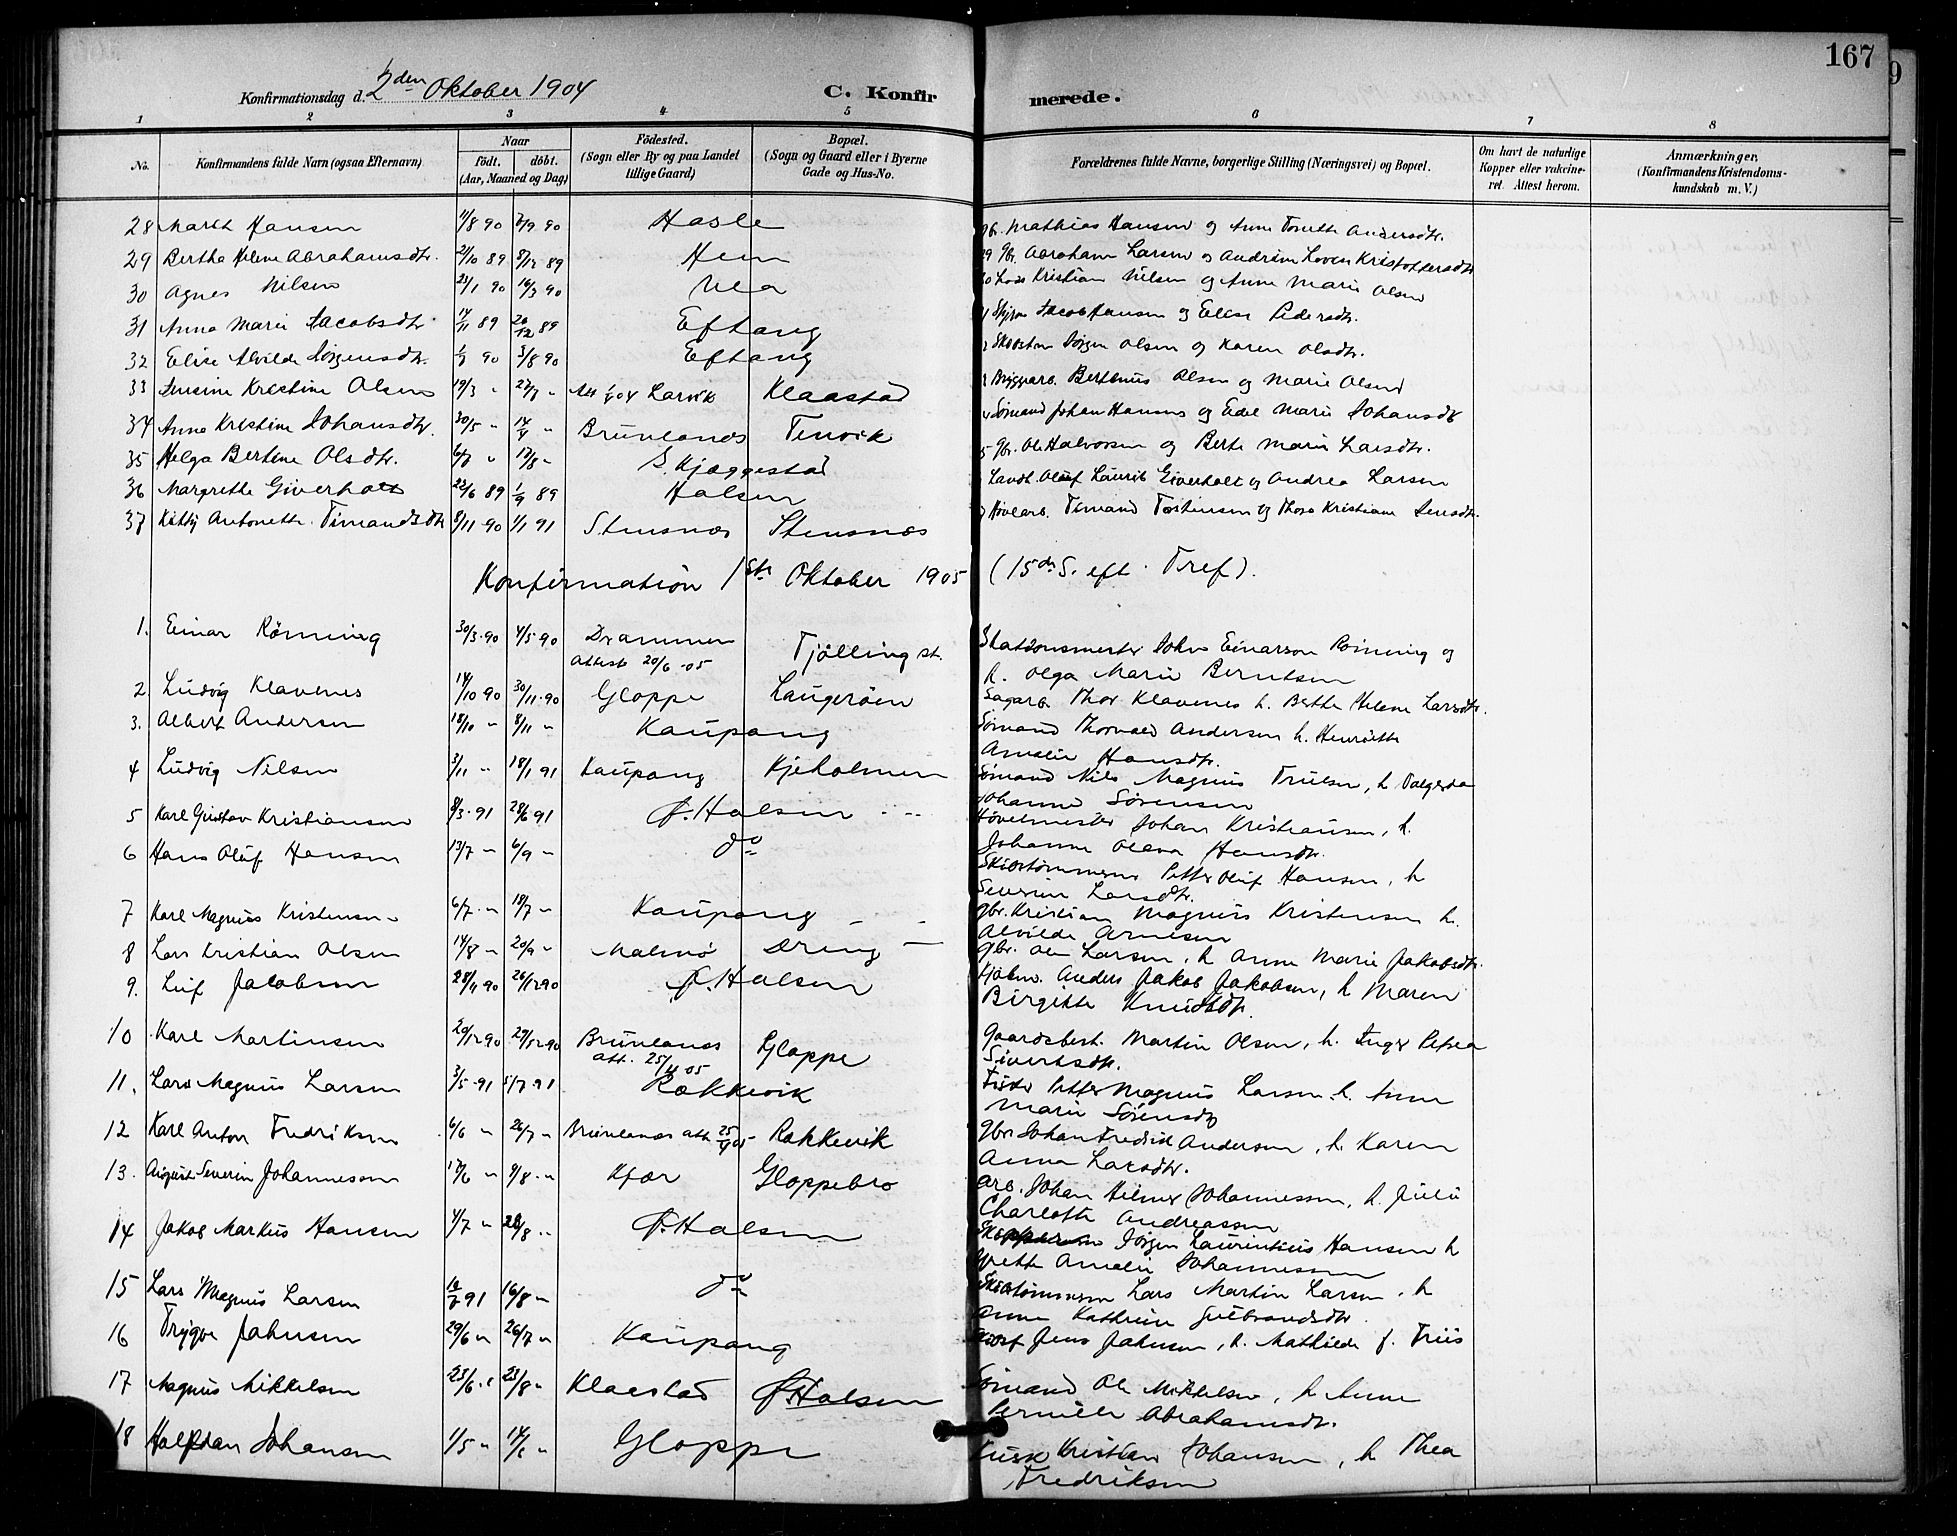 167
Konfirmationsdag d. 2den Oktober 1904 C. Konfirmerede.
1 2 3 4 5 6 7 8
No. Konfirmandens fulde Navn (ogsaa Efternavn) Naar født. døbt. (Aar, Maaned og Dag) Födested. (Sogn eller By og paa Landet tillige Gaard) Bopæl. (Sogn og Gaard eller i Byerne Gade og Hus-No. Forældrenes fulde Navne, borgerlige Stilling (Næringsvei) og Bopæl. Om havt de naturlige Kopper eller vakcineret. Attest herom. Anmærkninger. (Konfirmandens Kristendomskundskab m. V.)
28 Marit Hansen 11/8 90 7/9 90 Hasle Gbr. Mathias Hansen og Anne Tonette Andersdtr.
29 Bertha Helene Abrahamsdtr. 21/10 89 8/12 89 Hem Gbr. Abraham Larsen og Andrine Lovise Kristoffersdtr
30 Agnes Nilsen 23/1 90 16/3 90 Ula Lods Kristian Nilsen og Anne Marie Olsen
31 Anna Marie Jacobsdtr 14/11 89 26/12 89 Eftang Jacob Hansen og Elise Pedersdtr.
32 Elise Alvilde Jörgensdtr. 90 3/8 90 Eftang Jörgen Olsen og Karen Olsdtr.
33 Kristine Olsen 19/3 " 27/7 " Att Larvik Klaastad Bryggearb. Olsen og Marie Olsen
34 Anna Kristine Johansdtr. 30/5 " " Brunlanes Tenvik Sömand Johan Hansen og Edel Marie Johansdtr
35 Helga Bertine Olsdtr. " 17/8 " S. Kjæggestad Gbr. Ole Halvorsen og Berte Marie Larsdtr.
36 Margrethe Giverholt 22/6 89 1/9 89 Halsen Landh. Oluf Laurits Giverholt og Andrea Larsen
37 Kitty Antonette Timandsdtr 8/11 90 1/1 91 Stensnæs Stensnæs Hövlearb. Timand Torstensen og Thora Kristiane Jensdtr.
Konfirmation 1ste Oktober 1905 (15de S. eft. Tref).
1. Einar Rönning 30/3 90 4/5 90 Drammen Attest 20/6 05 Tjölling st. Stationsmester John Einarson Rönning og
h. Olga Marie Berntsen
2. Ludvig Klavenes 14/10 90 30/11 90 Gloppe Laugeröen Sagarb. Thor Klavenes h. Berthe Helene Larsdtr.
3. Albert Andersen 18/10 " 8/11 " Kaupang Sömand Thorvald Andersen h. Henriette
Amalie Hansdtr.
4 Ludvig Nilsen 3/11 " 18/1 91 Kaupang Kjeholmen Sömand Nils Magnus Truelsen, h. Valgerda
Johanne Sörensen
5 Karl Gustav Kristiansen 8/3 91 28/6 91 Ø. Halsen Hövelmester Johan Kristiansen, h.
Johanne Olava Hansdtr.
6 Hans Oluf Hansen 13/7 " 6/9 " do Skibstömmerm Petter Oluf Hansen, h
Severine Larsdtr.
7 Karl Magnus Kristensen 6/7 " 18/7 " Kaupang Gbr. Kristian Magnus Kristensen h.
Alvilde Arnesen
8 Lars Kristian Olsen 14/8 " 20/9 " Malmö Östing Gbr. Ole Larsen, h. Anne Marie Jakobsdtr.
9. Leif Jacobsen 28/11 90 26/12 90 Ø. Halsen Kjöbm. Anders Jakob Jakobsen, h Maren
Birgitte Knudsdtr.
10 Karl Martinsen 20/12 90 29/12 90 Brunlanes att. 25/4 05 Gloppe Gaardsbest. Martin Olsen, h. Inger Petrea
Sivertsdtr.
11. Lars Magnus Larsen 3/5 91 5/7 91 Rækkevik Petter Magnus Larsen h. Anne
Marie Sörensdtr
12 Karl Anton Fredriksen 6/6 " 26/7 " Brunlanes att. 25/4 05 Rækkevik Gbr Johan Fredrik Andersen, h. Karen
Anna Larsdtr.
13. August Severin Johannessen 17/6 " 9/8 " Kjær Gloppebro Arb. Johan Hilmer Johannessen, h. Julie
Charlotte Andreassen
14 Jakob Markus Hansen 4/7 " 28/8 " Ø. Halsen Jörgen Laurentius Hansen h
Grette Amalie Johannessen
15 Lars Magnus Larsen 91 16/8 " do Skibstömmerm Lars Martin Larsen, h
Anne Kathrine Gulbrandsdtr.
16 Trygve Jahnsen 29/6 " 26/7 " Kaupang Jens Jahnsen, h. Mathilde f. Friis
17 Magnus Mikkelsen 23/6 " 23/8 " Klaastad Ø. Halsen Sömand Ole Mikkelsen, h Anne
Pernille Abrahamsdtr.
18 Halfdan Johansen 1/5 " " Gloppe Kusk Kristian Johansen, h Thea
Fredriksen